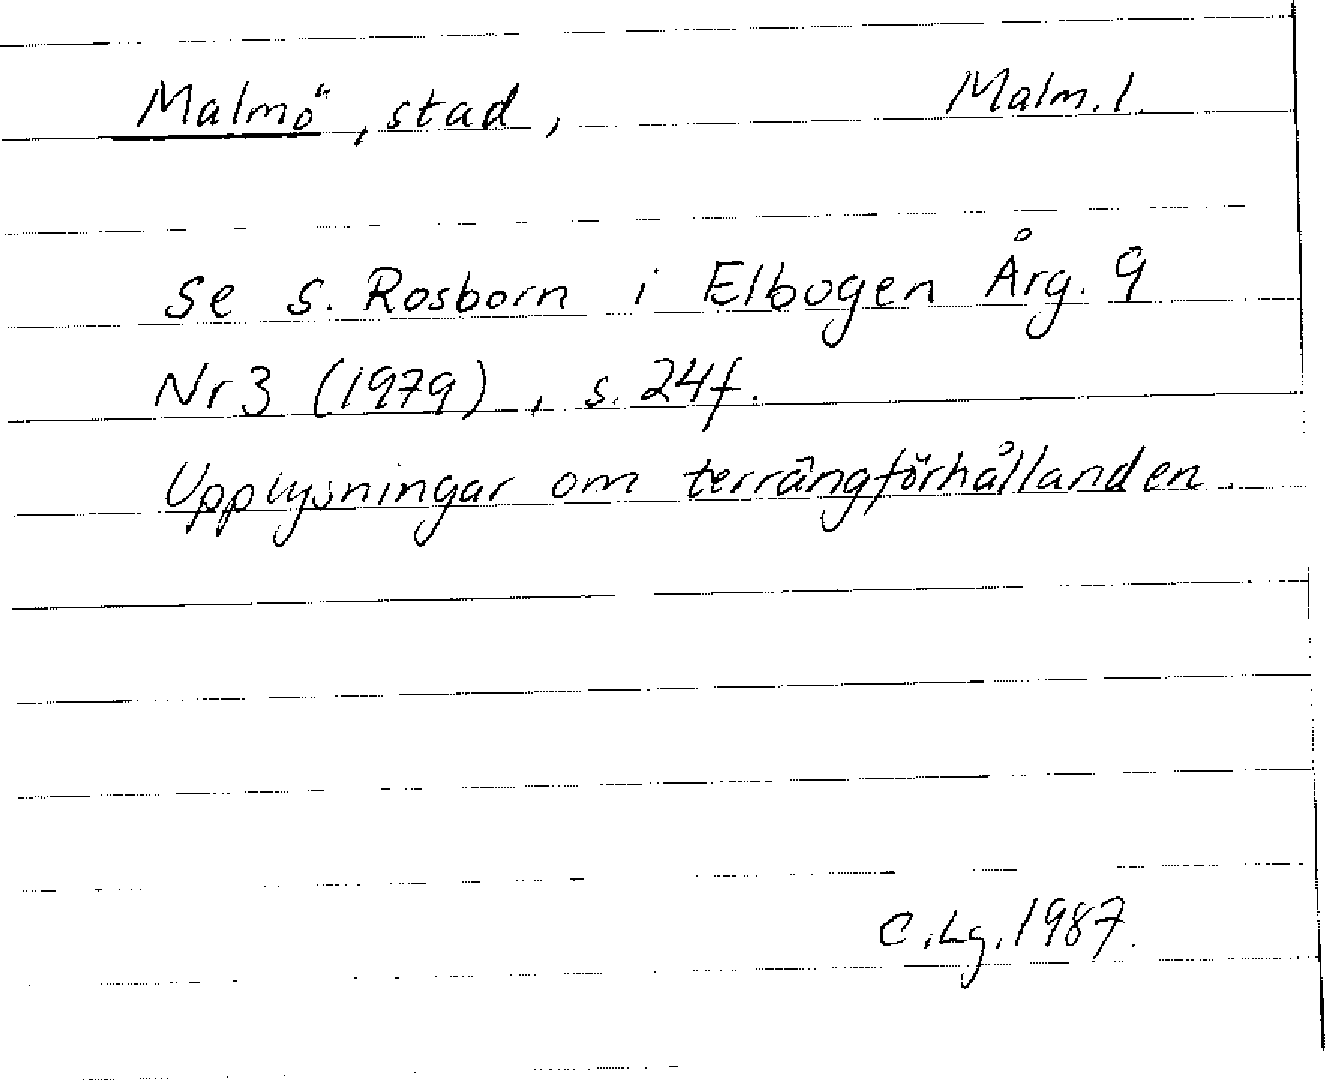 Malmö, stad, Malm. l.
Se S. Rosborn i Elbogen Årg. 9
Nr 3 (1979), s. 24f.
Upplysningar om terrängförhållanden.
C. Lg. 1987.